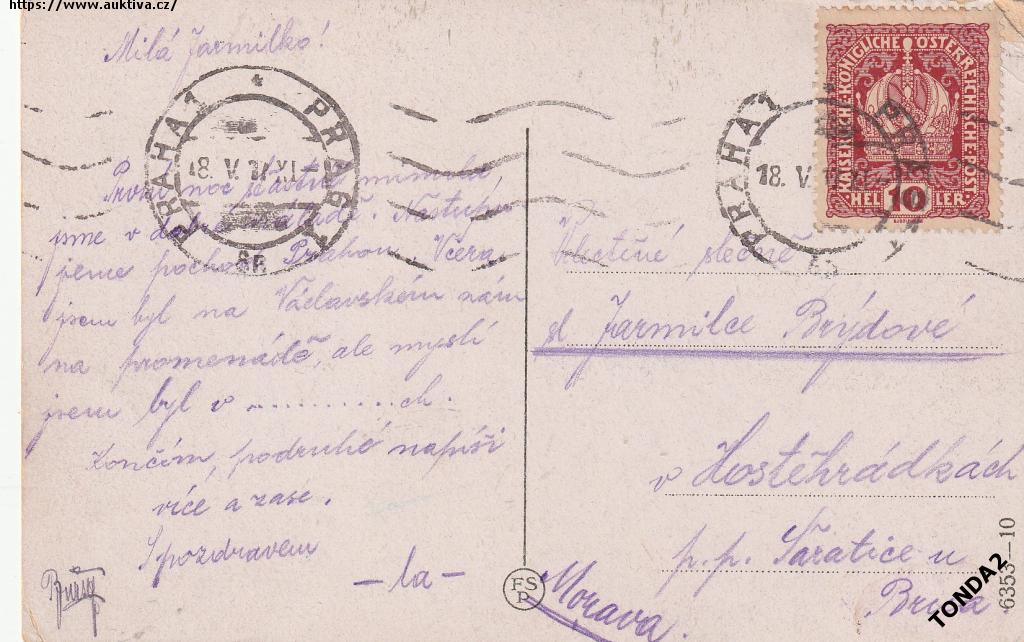 https://www.auktiva.cz/
Milá Jarmilko!
PRAHA 1 * PRAG 1
18. V. XI
8B
První noc šťastně
jsme v dobré náladě.
jsme Prahou. Včera
jsem byl na Václavském nám
na promenádě, ale myslí
jsem byl v ............ch.
Končím, podruhé napíši
více a zase.
S pozdravem
-la-
KAISERLICH-KÖNIGLICHE ÖSTERREICHISCHE POST
HELLER 10
PRAHA 1
18. V. XI
Velectěné slečně
sl Jarmilce Brýdové
v Hostěhrádkách
p.p. Šaratice u
Brna.
Morava.
FS
P
6353-10
TONDA2